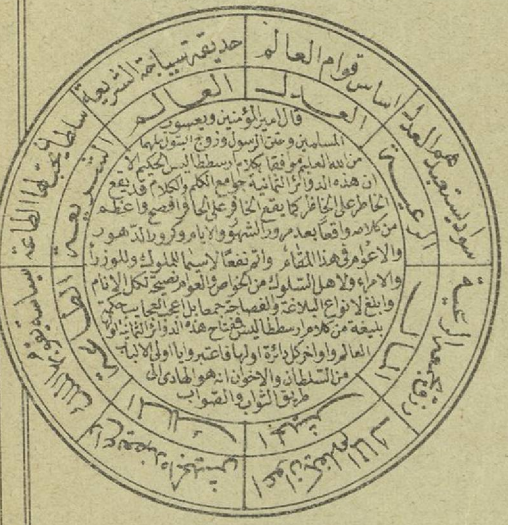 اساس قوام العالم
حديقة سياجة الشريعة
سلطان يجب لها الطاعة
سياسة يقوم بها الملك
راع يعضده الجيش
اعوان يكفلهم المال
رزق تجمعه الرعية
سواد يستعبدهم العدل
العدل
العالم
الشريعة
الطاعة
الملك
الجيش
المال
الرعية
قال امير المؤمنين ويعسوب
المسلمين وختن الرسول وزوج البتول ملهما
من الله العليم موفقا بكلام ارسطاطاليس الحكيم الا
ان هذه الدوائر الثمانية جوامع الكلم والكلام قد يقع
الخاطر على الخاطر كما يقع الحافر على الحافر افصح واعظم
من كلامه واقعا بعد مرور الشهور والايام وكرور الدهور
والاعوام في هذا المقام واتم نفعا لاسيما للملوك وللوزراء
والامراء ولاهل السلوك من الخواص والعوام نصيحة لكل الانام
وابلغ لانواع البلاغة والفصاحة جمعا بل اعجب العجايب حكمة
بليغة من كلام ارسطاطاليس فمفتاح هذه الدوائر الثمانية
العالم واواخر كل دائرة اولها فاعتبروا يا اولى الالباب
من السلطان والاخوان انه هو الهادى الى
طريق الثواب والصواب